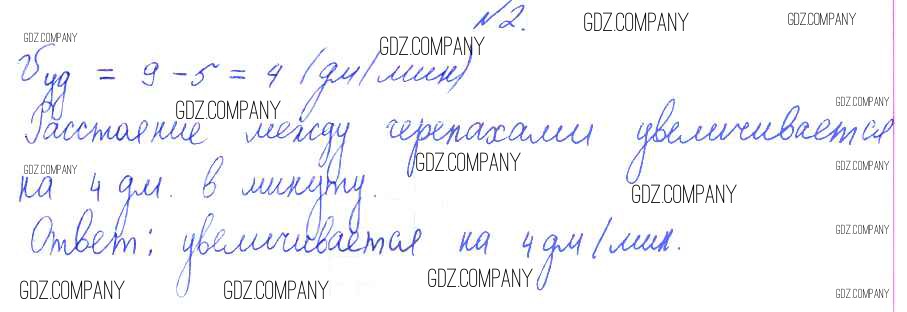 №2.
GDZ.COMPANY GDZ.COMPANY
GDZ.COMPANY GDZ.COMPANY
Vуд = 9 - 5 = 4 (дм/мин)
GDZ.COMPANY GDZ.COMPANY
Расстояние между черепахами увеличивается
GDZ.COMPANY GDZ.COMPANY GDZ.COMPANY
на 4 дм. в минуту.
GDZ.COMPANY
Ответ: увеличивается на 4 дм/мин.
GDZ.COMPANY
GDZ.COMPANY GDZ.COMPANY GDZ.COMPANY GDZ.COMPANY